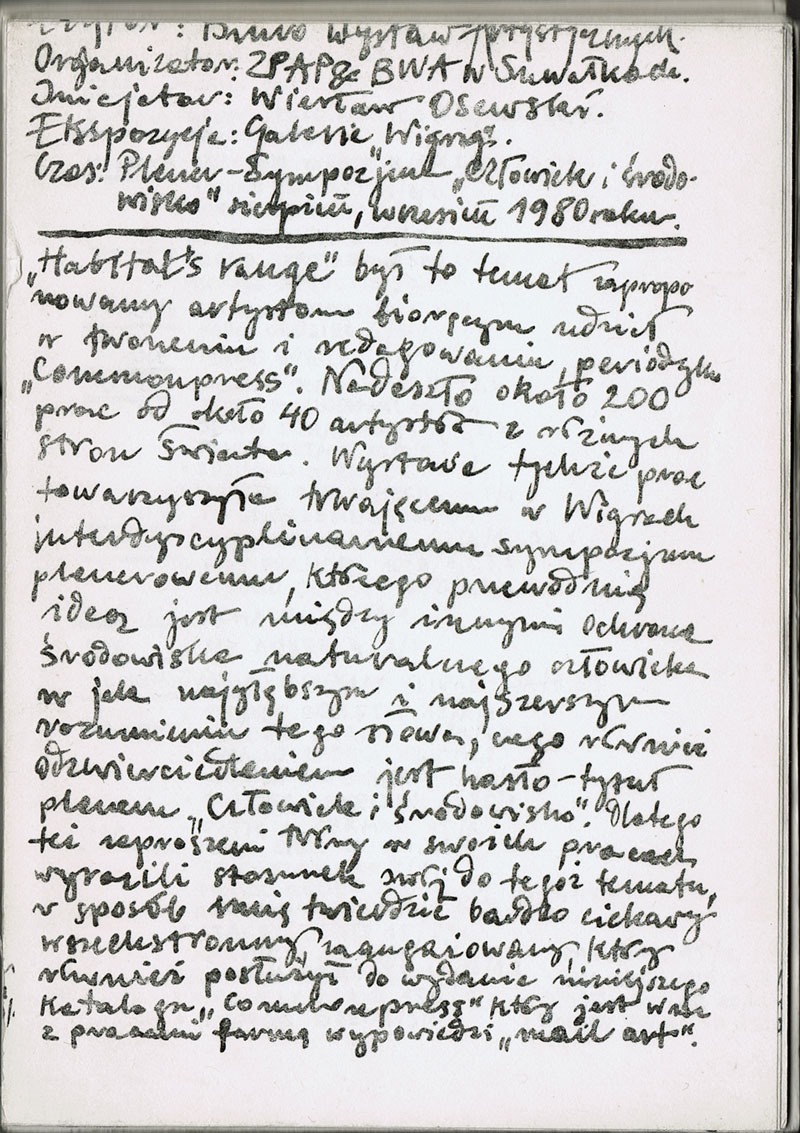 : Biuro Wystaw Artystycznych.
Organizator: ZPAP i BWA w Suwałkach.
Inicjator: Wiesław Osewski.
Ekspozycja: Galeria „Wigry”.
Czas: Plener-Sympozjum „Człowiek i środo-
wisko" sierpień, wrzesień 1980 roku.
„Habitat's range" był to temat zapropo
nowany artystom biorącym udział
w tworzeniu i redagowaniu periodyku
„Commonpress". Nadeszło około 200
prac od około 40 artystów z różnych
stron świata. Wystawa tychże prac
towarzyszyła trwającemu w Wigrach
interdyscyplinarnemu sympozjum
plenerowemu, którego przewodnią
ideą jest między innymi ochrona
środowiska naturalnego człowieka
w jak najgłębszym i najszerszym
rozumieniu tego słowa, czego również
odzwierciedleniem jest hasło-tytuł
pleneru „Człowiek i środowisko". Dlatego
też zaproszeni twórcy w swoich pracach
wyrazili stosunek swój do tegoż tematu,
w sposób śmię twierdzić bardzo ciekawy
wszechstronny, zaangażowany, który
również posłużył do wydania niniejszego
katalogu „Commonpress" który jest wraz
z pracami formą wypowiedzi „mail art".